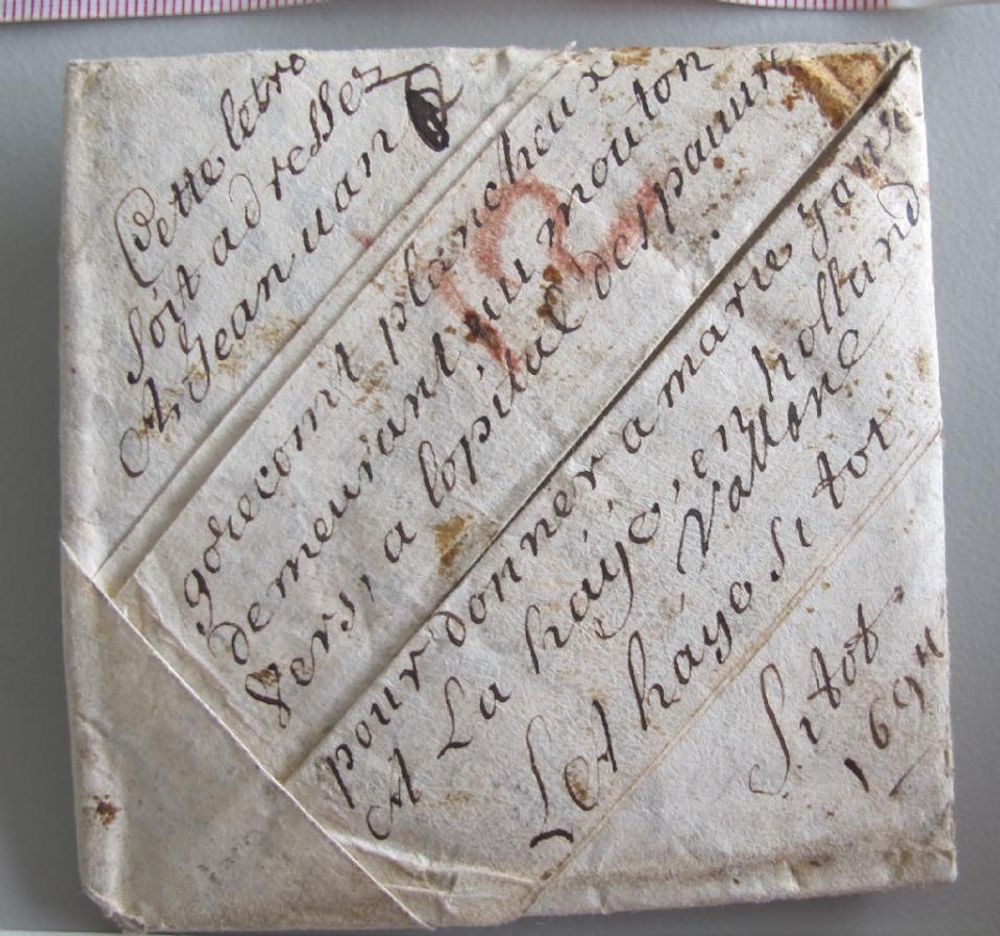 Cette letre
soit adressez
A Jean uan
gorecom't plänchoux
demeurant uu mouton
vers, a lopital des pauure
pour donner a marie jans
A La haÿe, en holland
Vallone
LA haye si tot
si tot.
1694